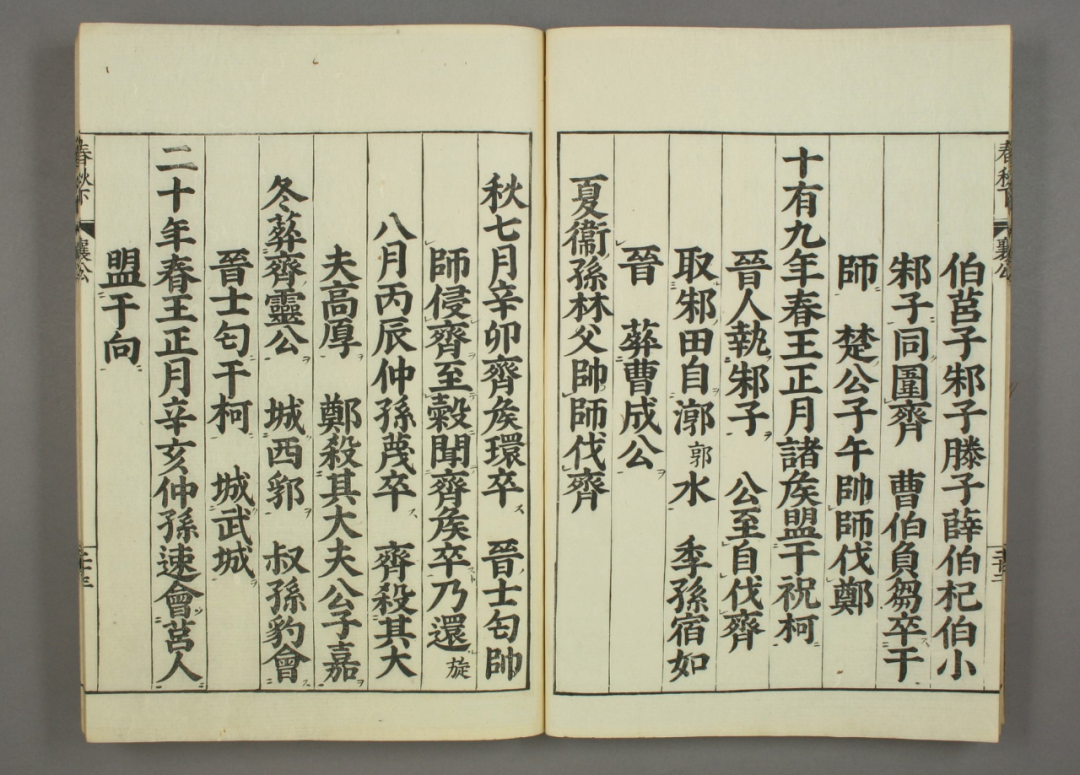 伯莒子邾子滕子薛伯杞伯小
邾子同圍齊　曹伯負芻卒于
師　楚公子午帥師伐鄭
十有九年春王正月諸矦盟于祝柯
晉人執邾子　公至自伐齊
取邾田自漷郭水　季孫宿如
晉　葬曹成公
夏衞孫林父帥師伐齊
秋七月辛卯齊矦環卒　晉士匄帥
師侵齊至穀聞齊矦卒乃還旋
八月丙辰仲孫蔑卒　齊殺其大
夫高厚　鄭殺其大夫公子嘉
冬葬齊靈公　城西郛　叔孫豹會
晉士匄于柯　城武城
二十年春王正月辛亥仲孫速會莒人
盟于向
春秋下
襄公
春秋下
襄公